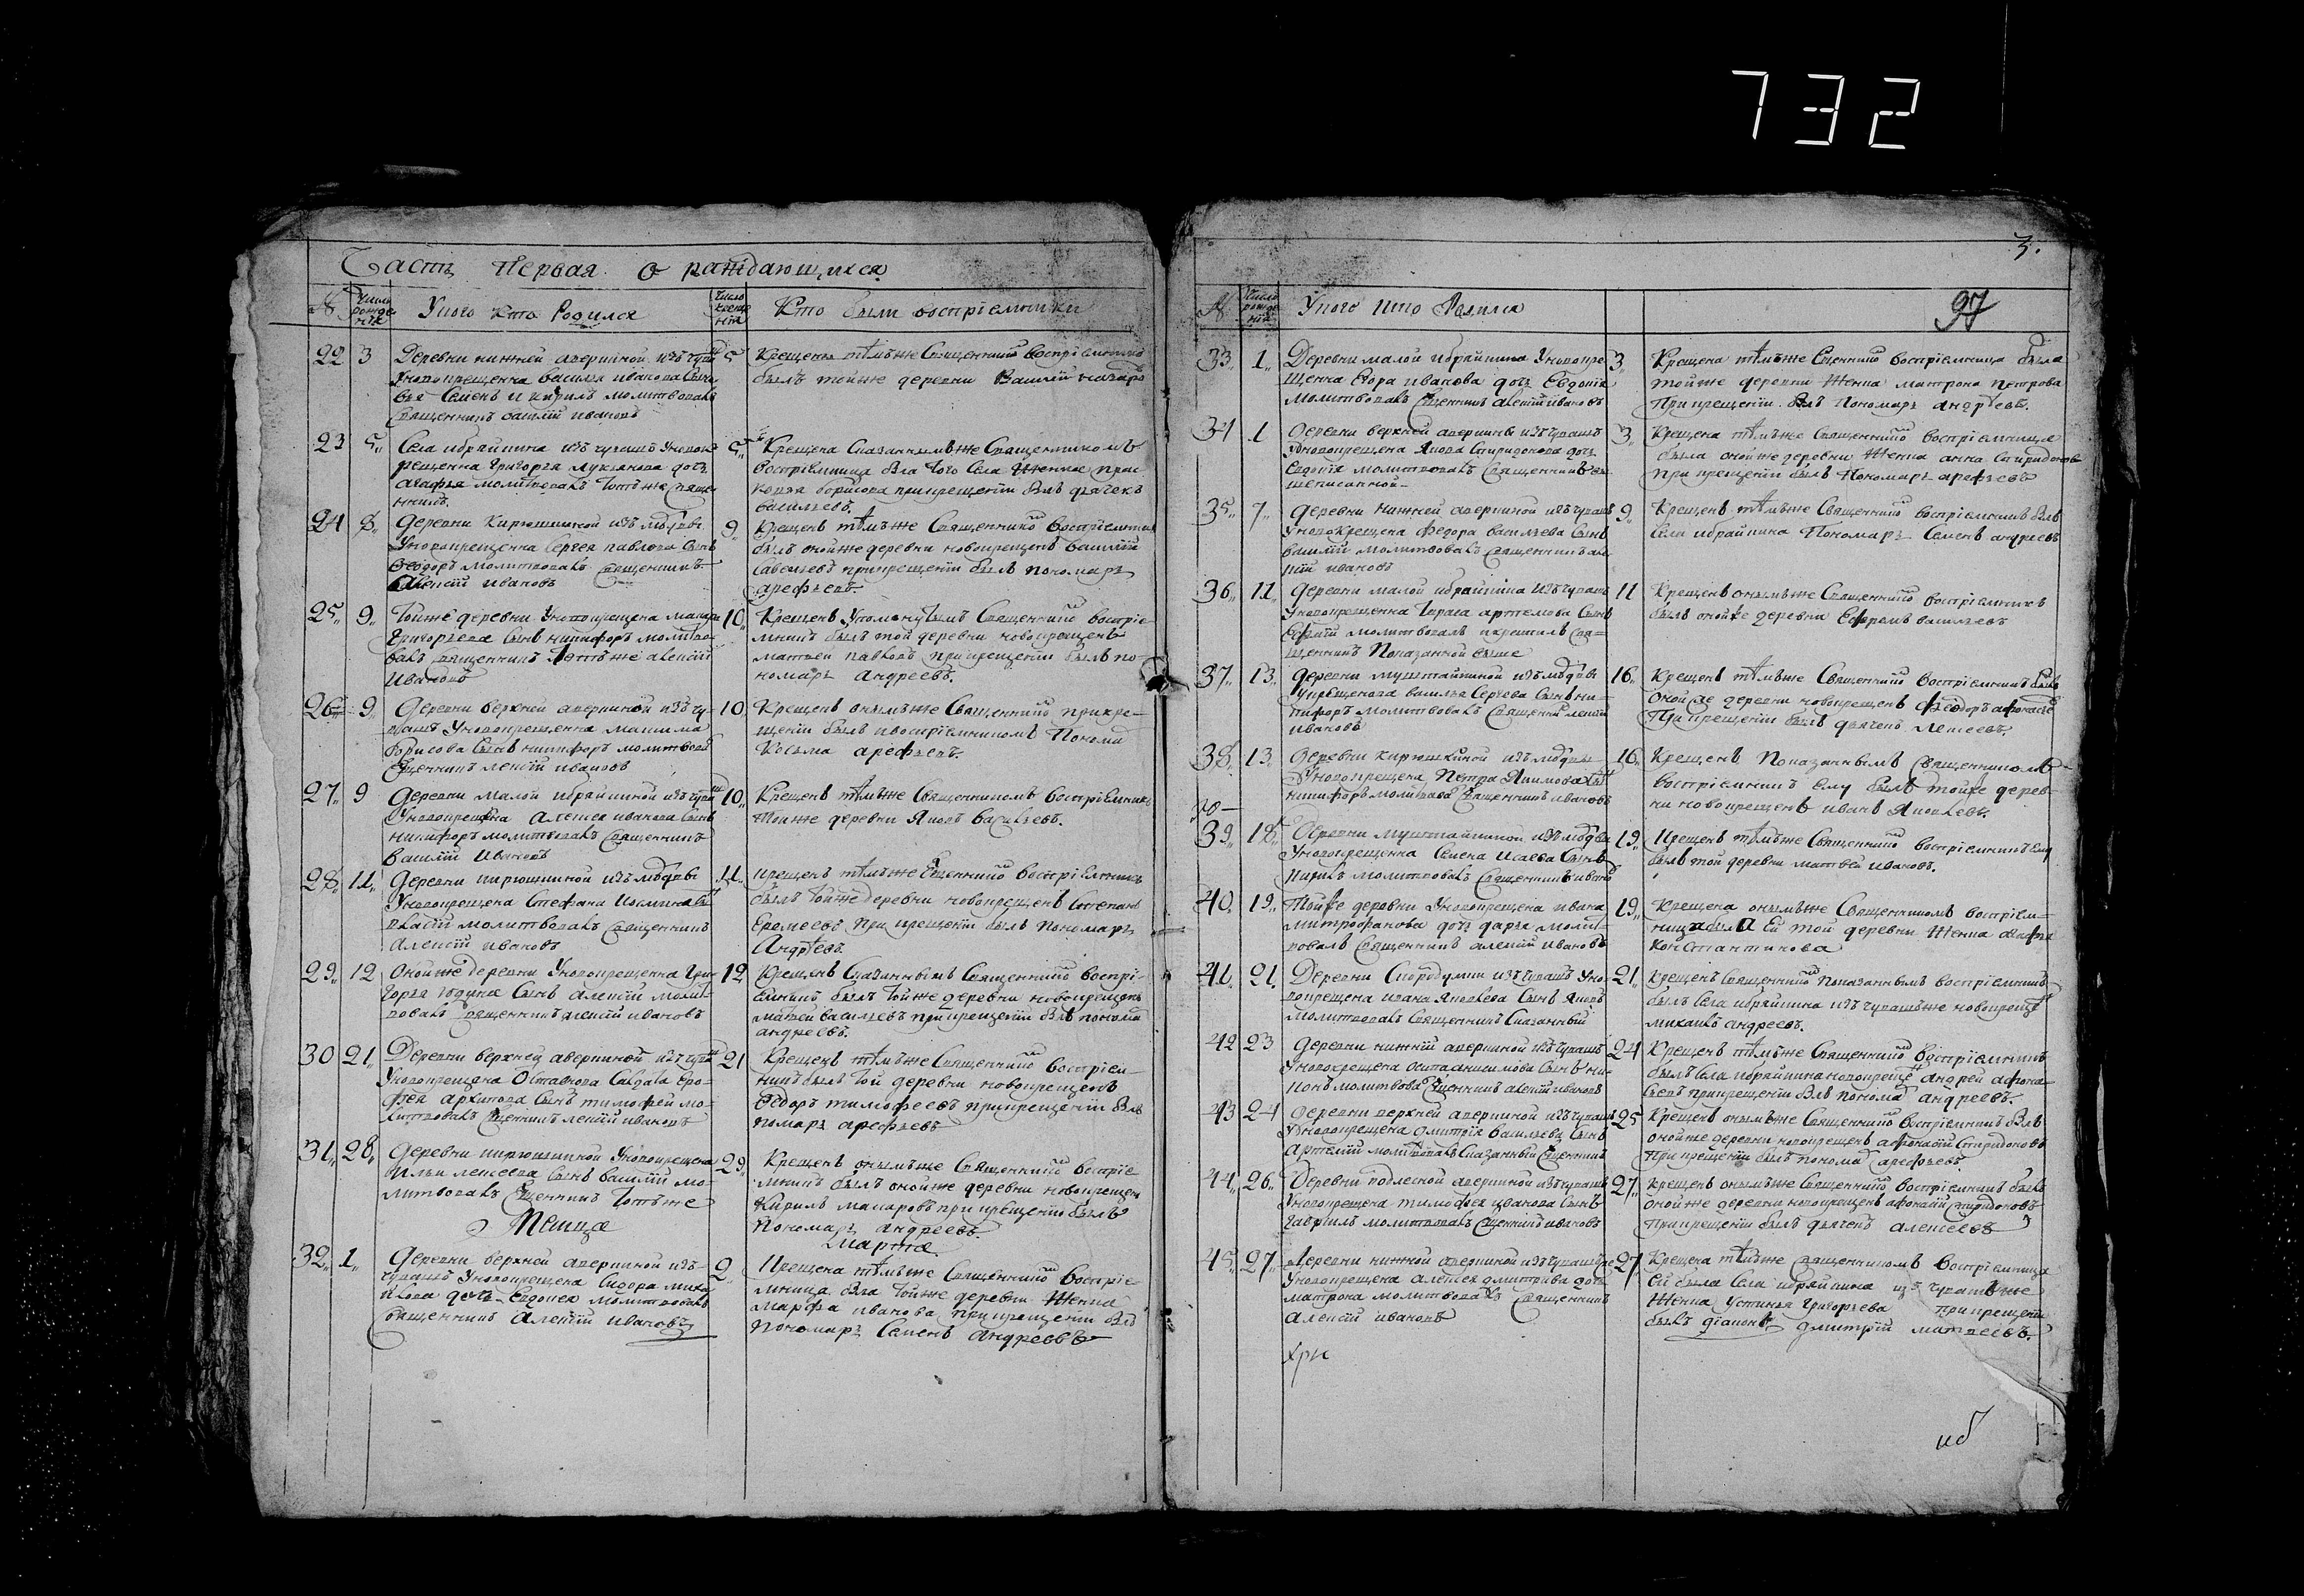 732
Часть первая о раждающихся
№
Число рожде ния
У кого кто Родился
Число креще ния
Кто были восприемники
22 3 Деревни нижней аверкиной изъ чуваш
Уновокрещенна василья иванова Сыно
вья Семенъ и кирилъ молитвовалъ
Священникъ василий ивановъ
5 Крещены темъже Священникомъ восприемникъ
былъ тойже деревни Василий
23 5 Села ибряйкина изъ чувашъ Уновок
рещенна григорья лукьянова дочь
агафья молитвовалъ тотъже Свяще
нникъ
5 Крещена Сказаннымъже Священникомъ
восприемница была того Села Женка прас
ковья борисова прикрещении былъ дьячекъ
васильевъ.
24 8 Деревни Кирюшкиной изъ мордвы
Уновокрещенна Сергея павлова Сынъ
Феодоръ молитвовалъ Священникъ
Алексий ивановъ
9 Крещенъ темъже Священникомъ восприемник
былъ онойже деревни новокрещенъ василий
Савельевъ прикрещении былъ пономарь
арефьевъ.
25 9 Тойже деревни Уновокрещена макара
григорьева Сынъ никифоръ молитво
валъ Священникъ тотъже алексий
Ивановъ
10 Крещенъ Упомянутымъ Священникомъ восприе
мникъ былъ той деревни новокрещенъ
матвей павловъ прикрещении былъ по-
номарь андреевъ.
26 9 Деревни верхней аверкиной изъ чу-
вашъ Уновокрещенна максима
борисова Сынъ никифоръ молитвовалъ
Священникъ алексий ивановъ
10 Крещенъ онымъже Священникомъ прикре-
щении былъ ивосприемникомъ Пономарь
Козьма арефьевъ.
27 9 Деревни малой ибряйкиной изъ чуваш
Уновокрещена Алексея иванова Сынъ
никифоръ молитвовалъ Священникъ
василий Ивановъ
10 Крещенъ темъже Священникомъ восприемникъ
тойже деревни Яковъ васильевъ.
28 11 Деревни кирюшкиной изъ мордвы
Уновокрещена Стефана
власий молитвовалъ Священникъ
Алексий ивановъ
11 крещенъ темъже Священникомъ восприемникъ
былъ тойже деревни новокрещенъ Степанъ
Еремеевъ при крещении былъ пономарь
Андреевъ.
29 12 Онойже деревни Уновокрещенна Гри-
горья Сынъ алексий молит-
вовалъ Священникъ алексий ивановъ
12 Крещенъ Сказаннымъ Священникомъ воспри-
емникъ былъ тойже деревни новокрещенъ
матвей васильевъ прикрещении былъ понома
андреевъ.
30 21 Деревни верхней аверкиной изъ чуваш
Уновокрещена Отставнова Салдата Еро-
фея архипова Сынъ тимофей мо-
литвовалъ Священникъ алексий ивановъ
21 Крещенъ темъже Священникомъ восприем-
никъ былъ той деревни новокрещенъ
Федоръ тимофеевъ прикрещении былъ
номарь арефьевъ
31 28 Деревни кирюшкиной Уновокрещена
Ильи алексеева Сынъ василий мо-
литвовалъ Священникъ тотъже
29 Крещенъ онымъже Священникомъ восприе
мникъ былъ онойже деревни новокрещен
Кирилъ макаровъ при крещении былъ
Пономарь андреевъ.
Месяца Марта
32 1 Деревни верхней аверкиной изъ
чувашъ Уновокрещена Сидора миха
илова дочь Евдокея молитвовалъ
Священникъ Алексий ивановъ
2 Крещена темъже Священникомъ восприе-
мница была тойже деревни Женка
марфа иванова прикрещении был
пономарь Семенъ андреевъ
3.
97
№
Число рожде ния
У кого кто Родился
33 1 Деревни малой ибряйкина Уновокре
щенна Егора иванова дочь Евдокия
молитвовалъ Священникъ алексий ивановъ
3 Крещена темъже Священникомъ восприемница была
тойже деревни Женка матрона петрова
При крещении былъ Пономарь андреевъ.
34 1 Деревни верхней аверкины изъ чувашъ
Уновокрещена Якова Спиридонова дочь
Евдокия молитвовалъ Священникъ вы-
шеписанной
3 Крещена темъже Священникомъ восприемница
была онойже деревни Женка анна Спиридонова
при крещении былъ Пономарь арефьевъ
35 7 Деревни нижней аверкиной изъ чувашъ
Уновокрещена Федора васильева Сынъ
василий молитвовалъ Священникъ але
ксий ивановъ
9 Крещенъ темъже Священникомъ восприемникъ былъ
Села ибряйкина Пономарь Семенъ андреевъ
36 11 Деревни малой ибряйкина изъ чувашъ
Уновокрещенна артемова Сынъ
молитвовалъ икрестилъ Свя-
щенникъ Показанной выше
11 Крещенъ онымъже Священникомъ восприемникъ
былъ онойже деревни Ефремъ васильевъ
37 13 Деревни муштайкиной изъ мордвы
василья Сергеева Сынъ ни-
кифоръ молитвовалъ Священникъ алексий
ивановъ
16 Крещенъ темъже Священникомъ восприемникъ былъ
онойже деревни новокрещенъ Феодоръ афонасье
При крещении былъ дьячекъ Алексеевъ
38 13 Деревни кирюшкиной изъ мордвы
Уновокрещена Петра Якимова Сынъ
никифоръ молитвова Священникъ ивановъ
16 Крещенъ Показаннымъ Священникомъ
восприемникъ ему былъ тойже дерев-
ни новокрещенъ иванъ Яковлевъ.
39 18 Деревни муштайкиной изъ мордвы
Уновокрещенна Семена Исаева Сынъ
молитвовалъ Священникъ ивано
19 Крещенъ темъже Священникомъ восприемникъ ему
былъ той деревни матвей ивановъ.
40 19 Тойже деревни Уновокрещена ивана
митрофанова дочь дарья молит-
вовалъ Священникъ алексий ивановъ
19 Крещена онымъже Священникомъ восприем-
ница была ей той деревни Женка
Константинова
41 21 Деревни Скородумки изъ чувашъ Уно-
вокрещена ивана Яковлева Сынъ Яковъ
молитвовалъ Священникъ Сказанный
21 Крещенъ Священникомъ показаннымъ восприемникъ
былъ Села ибряйкина изъ чувашъже новокреще
михаилъ андреевъ.
42 23 Деревни нижний аверкиной изъ чувашъ
Уновокрещена анисимова Сынъ ни-
конъ молитвова Священникъ алексий ивановъ
24 Крещенъ темъже Священникомъ восприемникъ
былъ Села ибряйкина новокреще андрей афона-
сьевъ прикрещении былъ понома андреевъ
43 24 Деревни верхней аверкиной изъ чувашъ
Уновокрещена дмитрия васильева Сынъ
Артемий молитвовалъ Сказанный Священникъ
25 Крещенъ онымъже Священникомъ восприемникъ былъ
онойже деревни новокрещенъ афонасий Спиридоновъ
При крещении былъ понома арефьевъ
44 26 Деревни подлесной аверкиной изъ чувашъ
Уновокрещена тимофея иванова Сынъ
гаврилъ молитвовалъ Священникъ ивановъ
27 Крещенъ онымъже Священникомъ восприемникъ былъ
онойже деревни новокрещенъ афонасий Спиридоновъ
При крещении былъ дьячекъ алексеевъ
45 27 Деревни нижней аверкиной изъ чувашъ
Уновокрещена алексея дмитриева дочь
матрона молитвовалъ Священникъ
алексий ивановъ
27 Крещена темъже Священникомъ восприемница
ей была Села ибряйкина изъ чувашъже
Женка Устинья григорьева при крещении
былъ диаконъ дмитрий матвеевъ.